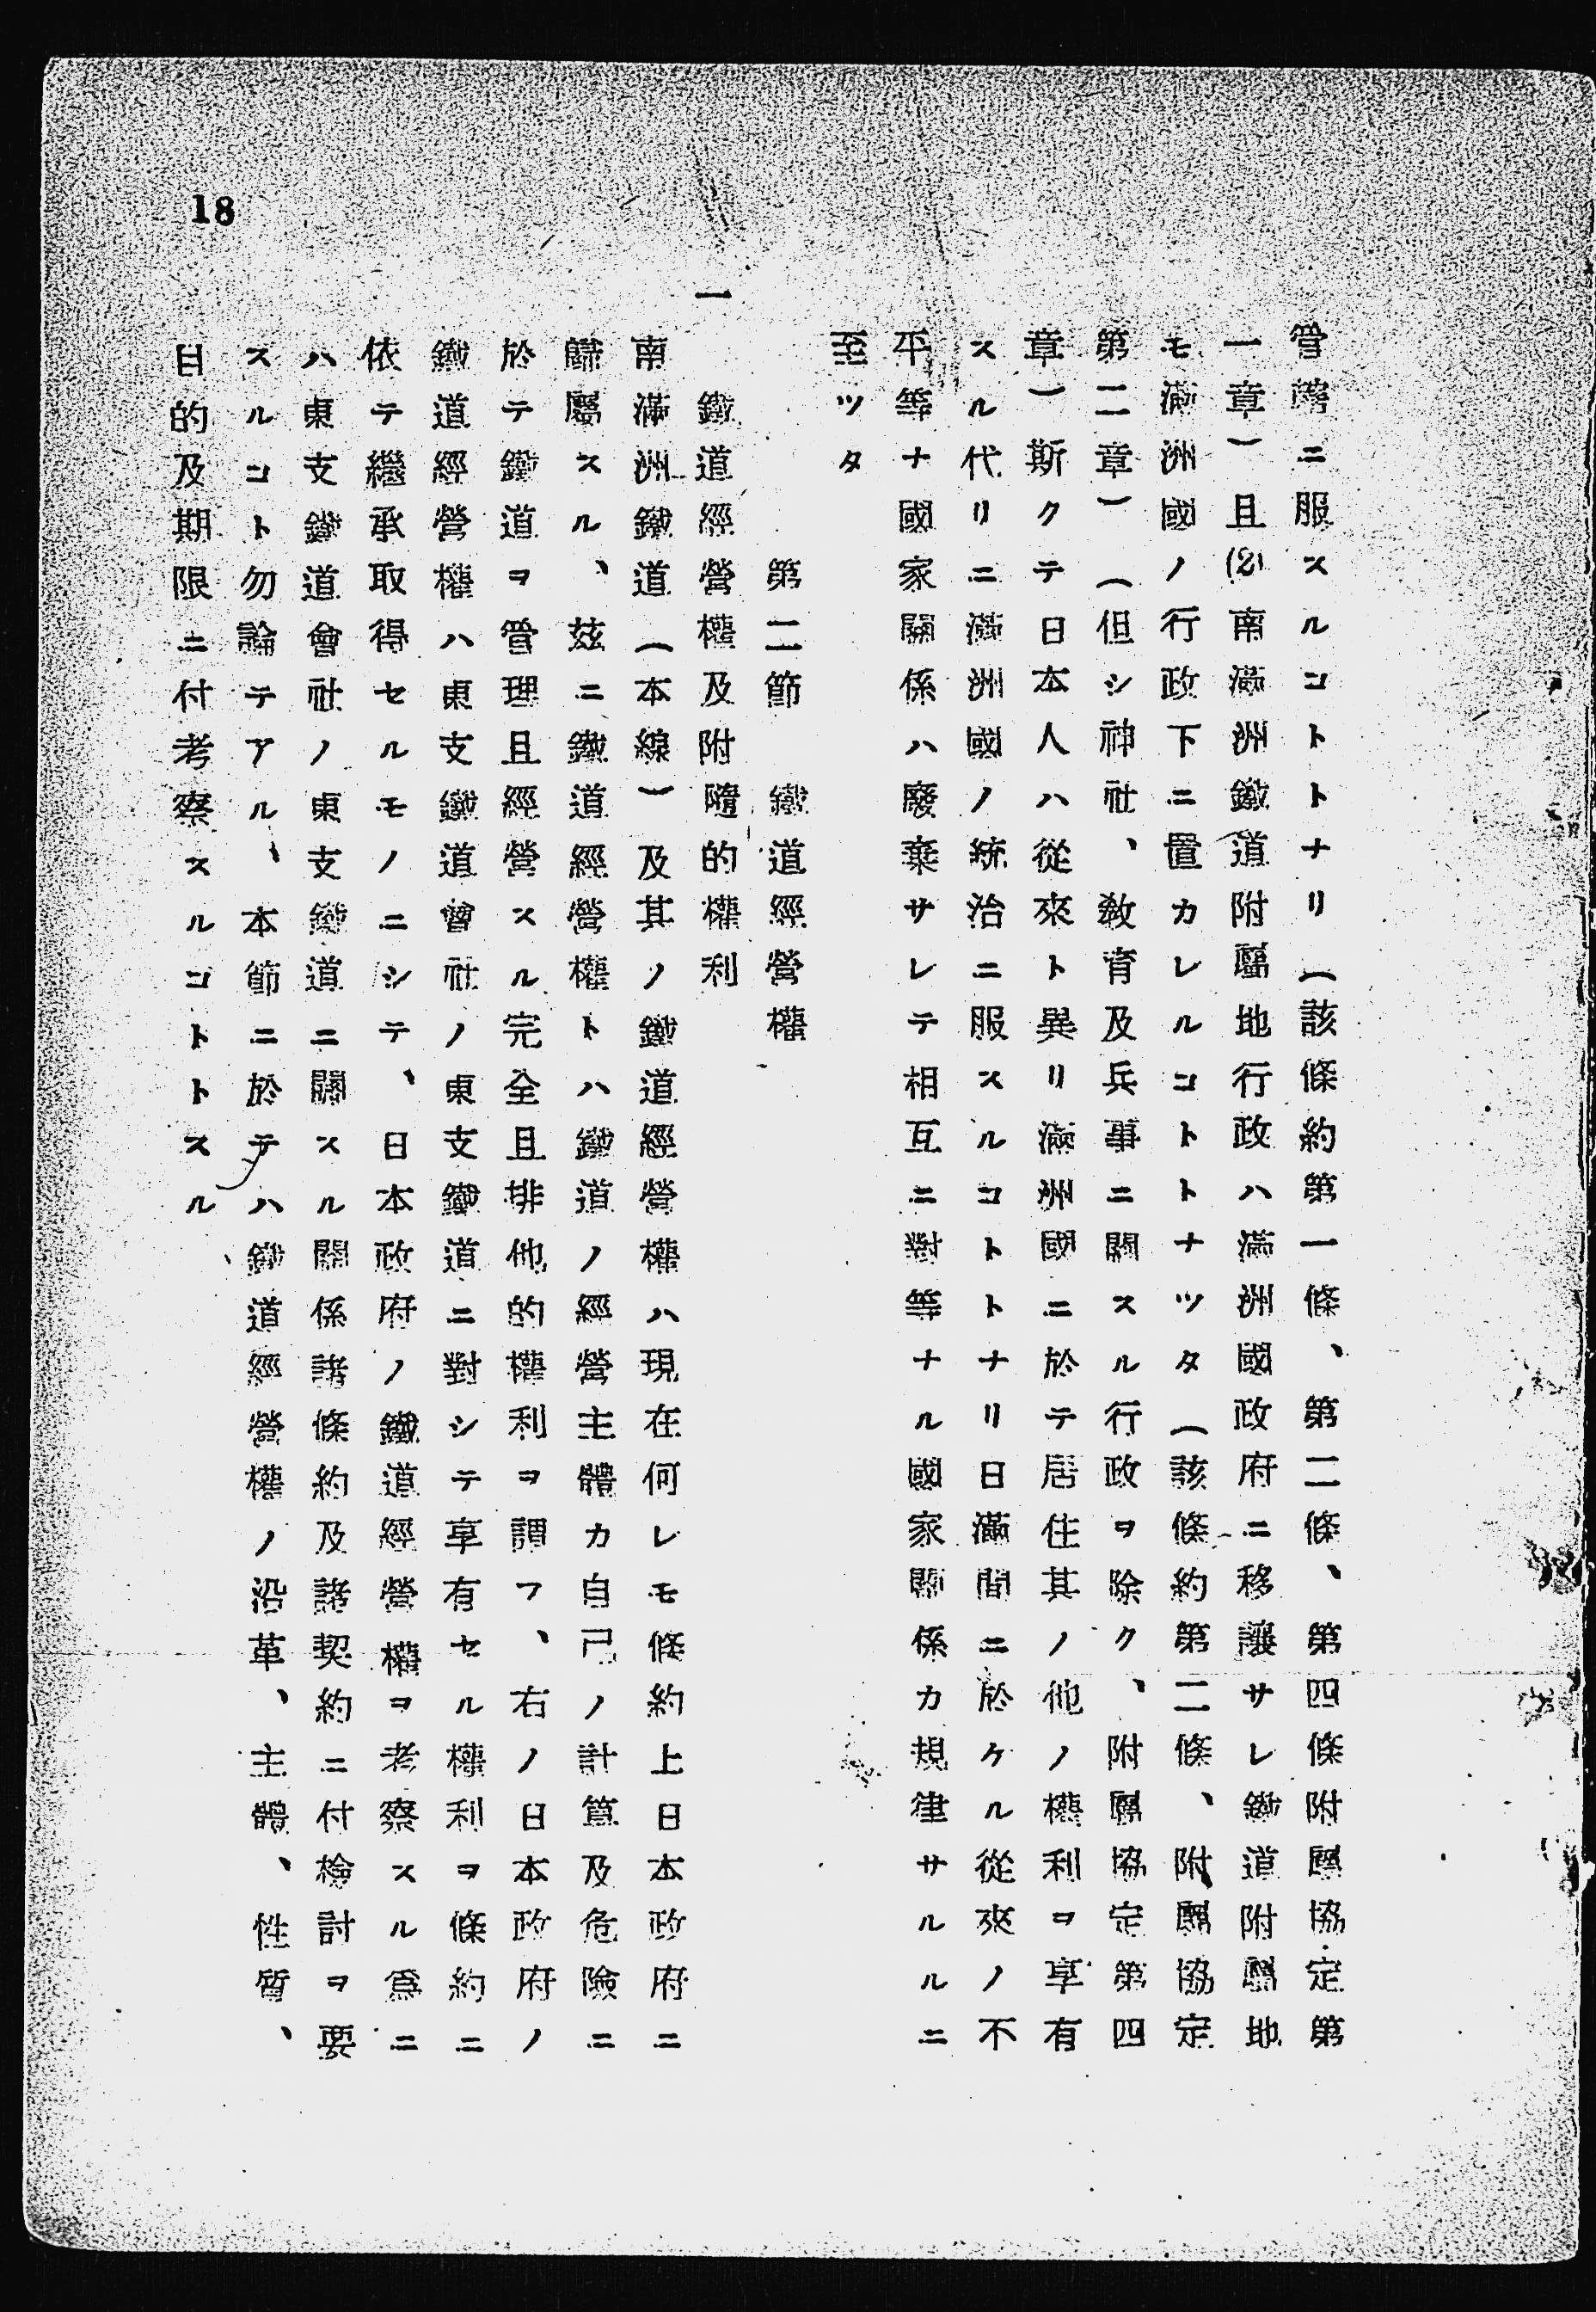 18
管轄ニ服スルコトトナリ(該條約第一條、第二條、第四條附屬協定第
一章)且(2)南滿洲鐵道附屬地行政ハ滿洲國政府ニ移讓サレ鐵道附屬地
モ滿洲國ノ行政下ニ置カレルコトトナツタ(該條約第二條、附屬協定
第二章)(但シ神社、敎育及兵事ニ關スル行政ヲ除ク、附屬協定第四
章)斯クテ日本人ハ從來ト異リ滿洲國ニ於テ居住其ノ他ノ權利ヲ享有
スル代リニ滿洲國ノ統治ニ服スルコトトナリ日滿間ニ於ケル從來ノ不
平等ナ國家關係ハ廢棄サレテ相互ニ對等ナル國家關係カ規律サルルニ
至ツタ
第二節 鐵道經營權
一 鐵道經營權及附隨的權利
南滿洲鐵道(本線)及其ノ鐵道經營權ハ現在何レモ條約上日本政府ニ
歸屬スル、茲ニ鐵道經營權トハ鐵道ノ經營主體カ自己ノ計算及危險ニ
於テ鐵道ヲ管理且經營スル完全且排他的權利ヲ謂フ、右ノ日本政府ノ
鐵道經營權ハ東支鐵道會社ノ東支鐵道ニ對シテ享有セル權利ヲ條約ニ
依テ繼承取得セルモノニシテ、日本政府ノ鐵道經營權ヲ考察スル爲ニ
ハ東支鐵道會社ノ東支鐵道ニ關スル關係諸條約及諸契約ニ付檢討ヲ要
スルコト勿論テアル、本節ニ於テハ鐵道經營權ノ沿革、主體、性質、
目的及期限ニ付考察スルコトトスル